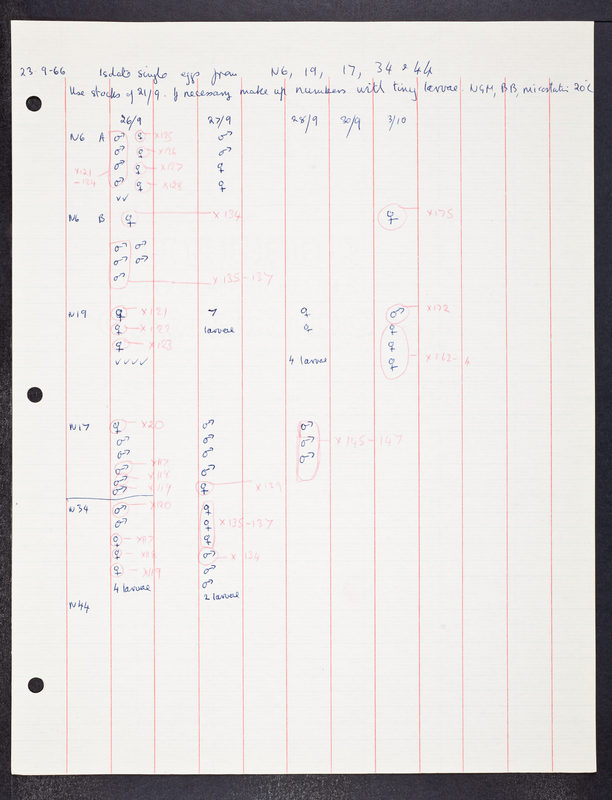 23.9-66 Isolate single eggs from N6, 19, 17, 34 & 44
Use stocks of 21/9. If necessary make up numbers with tiny larvae. NGM, BB, nicostatin 20°C
26/9 27/9 28/9 30/9 3/10
N6 A ♂ ♀ x125 ♂
♂ ♀ x126 ♂
x121 - 124 ♂ ♀ x127 ♀
♂ ♀ x128 ♀
✓✓
N6 B ♀ x134 ♀ x175
♂ ♂
♂ ♂
♂ x135-137
N19 ♀ x121 7 ♀ ♂ x172
♀ x122 larvae ♀ ♀
♀ x123 ♀
✓✓✓✓ 4 larvae ♀ x162-4
N17 ♀ x20 ♂ ♂
♂ ♂ ♂ x145-147
♂ ♂ ♂
♂ x117 ♂
♂ x118
♂ x119 ♀ x129
N34 ♂ x120 ♀
♂ ♀ x135-137
♀ x117 ♀
♀ x118 ♂ x134
♀ x119 ♂
4 larvae ♂
N44 2 larvae